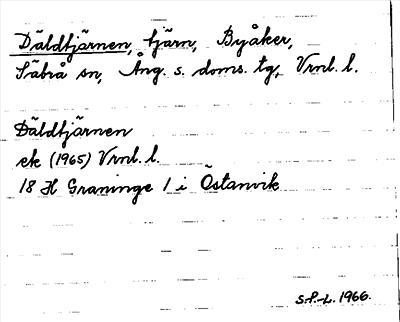 Däldtjärnen, tjärn, Byåker,
Säbrå sn, Ång. s. doms. tg, Vrnl. l.
Däldtjärnen
ek (1965) Vrnl. l.
18 H Graninge 1 i Östanvik
S.P.-L. 1966.